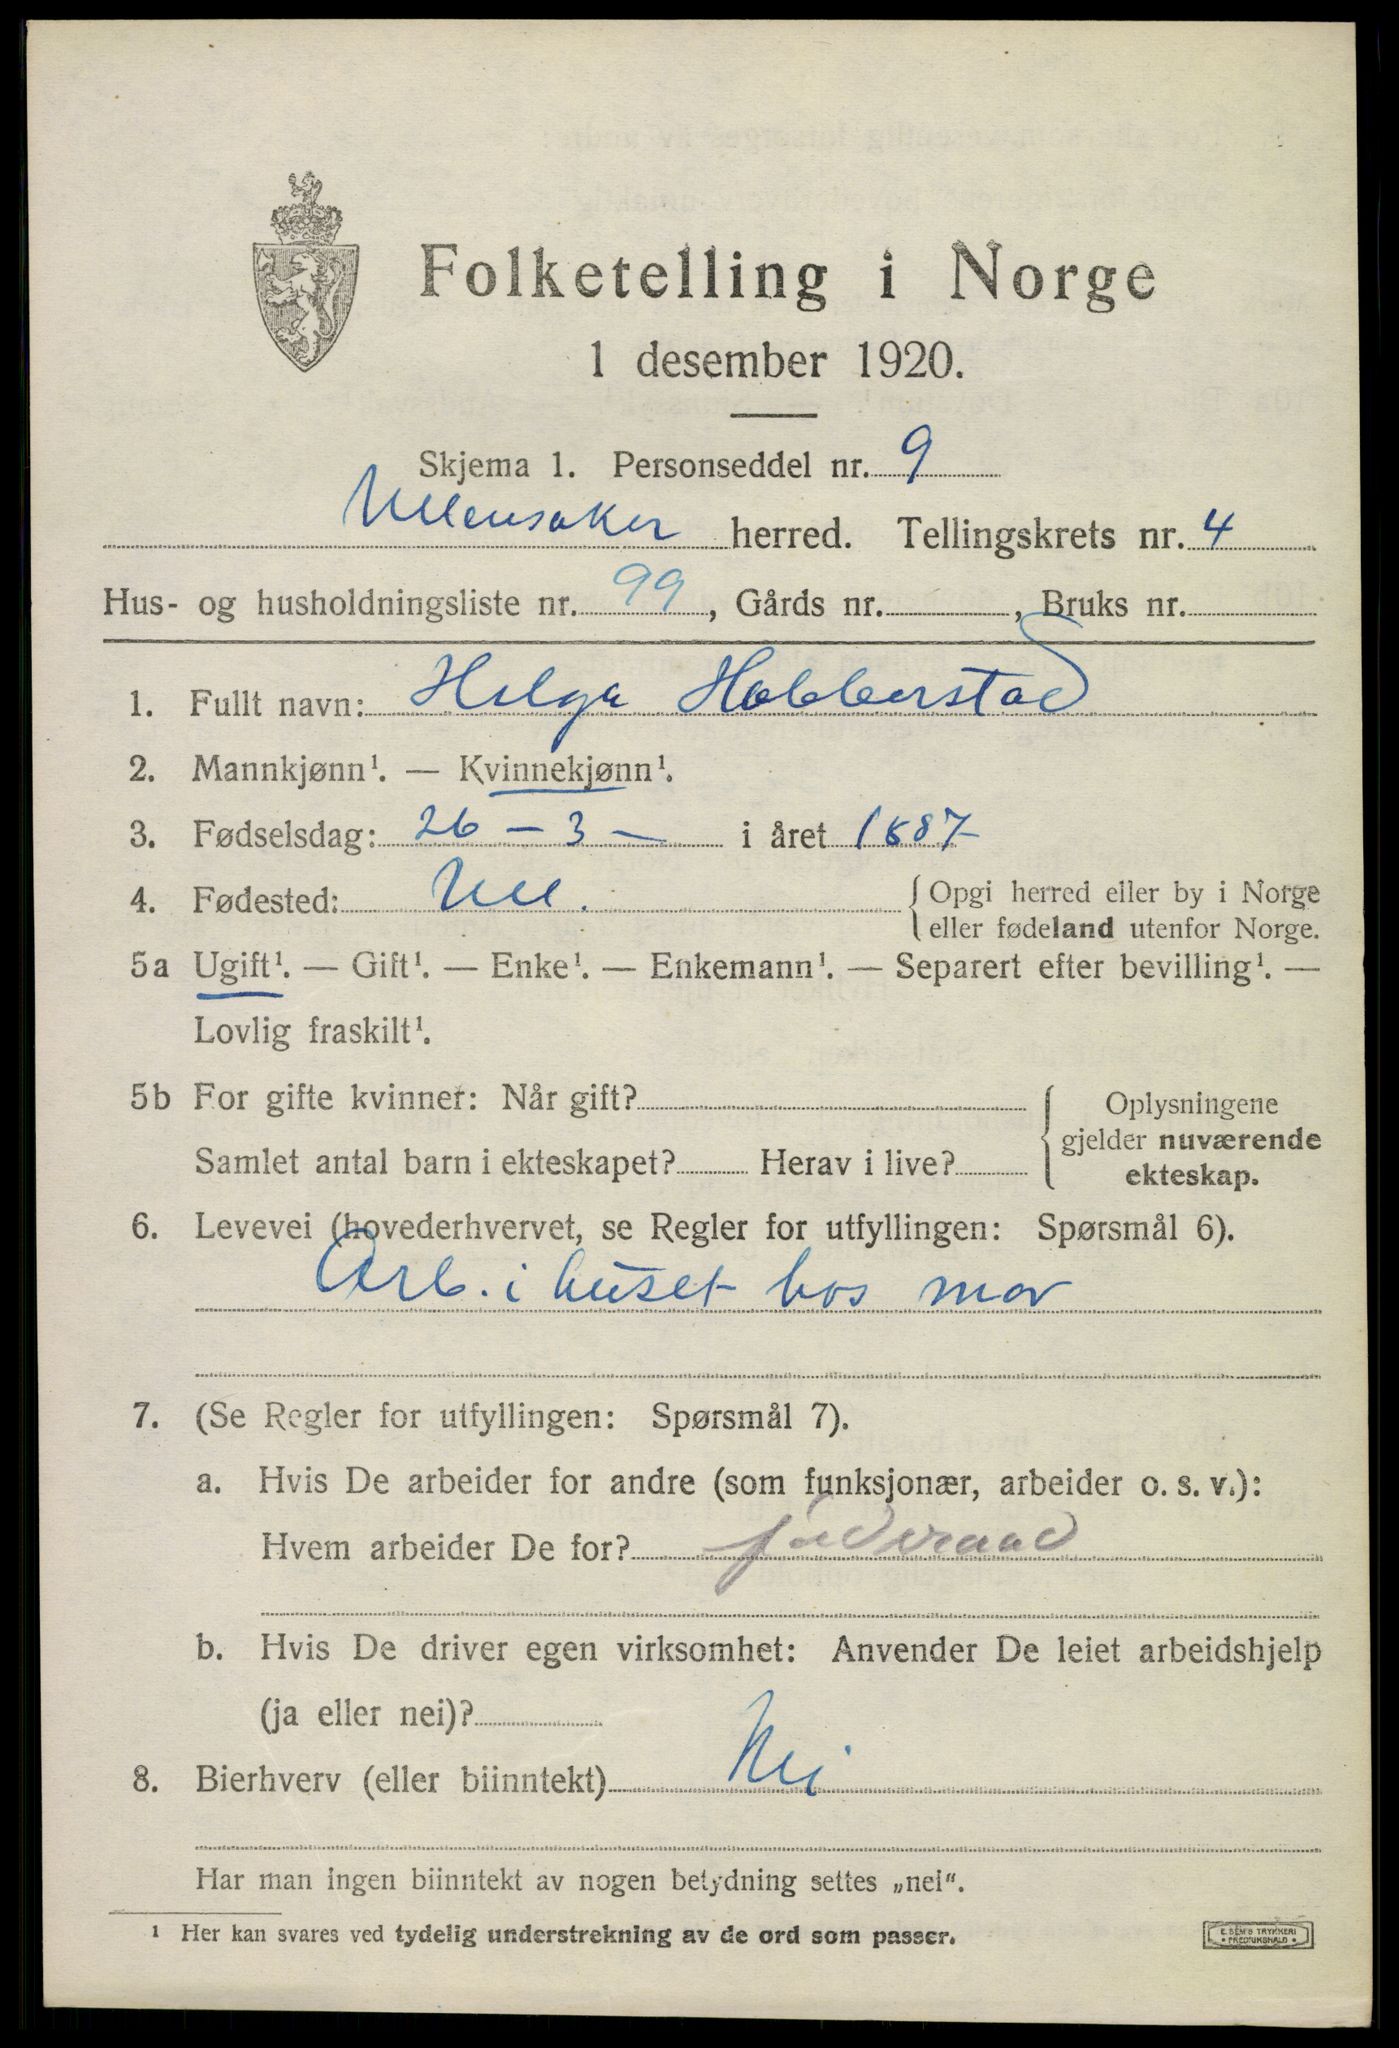 Folketelling i Norge
1 desember 1920.
Skjema 1. Personseddel nr. 9
Ullensaker herred. Tellingskrets nr. 4
Hus- og husholdningsliste nr. 99, Gårds nr. , Bruks nr.
1. Fullt navn: Helga Habberstad
2. Mannkjønn¹. — Kvinnekjønn¹.
3. Fødselsdag: 26 - 3 - i året 1887
4. Fødested: Ull. { Opgi herred eller by i Norge
eller fødeland utenfor Norge.
5a Ugift¹. — Gift¹. — Enke¹. — Enkemann¹. — Separert efter bevilling¹. —
Lovlig fraskilt¹.
5b For gifte kvinner: Når gift? Oplysningene
gjelder nuværende
Samlet antal barn i ekteskapet? Herav i live?
ekteskap.
6. Levevei (hovederhvervet, se Regler for utfyllingen: Spørsmål 6).
Arb. i huset hos mor
7. (Se Regler for utfyllingen: Spørsmål 7).
a. Hvis De arbeider for andre (som funksjonær, arbeider o. s. v.):
Hvem arbeider De for? föderaad
b. Hvis De driver egen virksomhet: Anvender De leiet arbeidshjelp
(ja eller nei)?
8. Bierhverv (eller biinntekt) Nei
Har man ingen biinntekt av nogen betydning settes „nei".
¹ Her kan svares ved tydelig understrekning av de ord som passer.
E. SEM'S TRYKKERI
FREDRIKSHALD